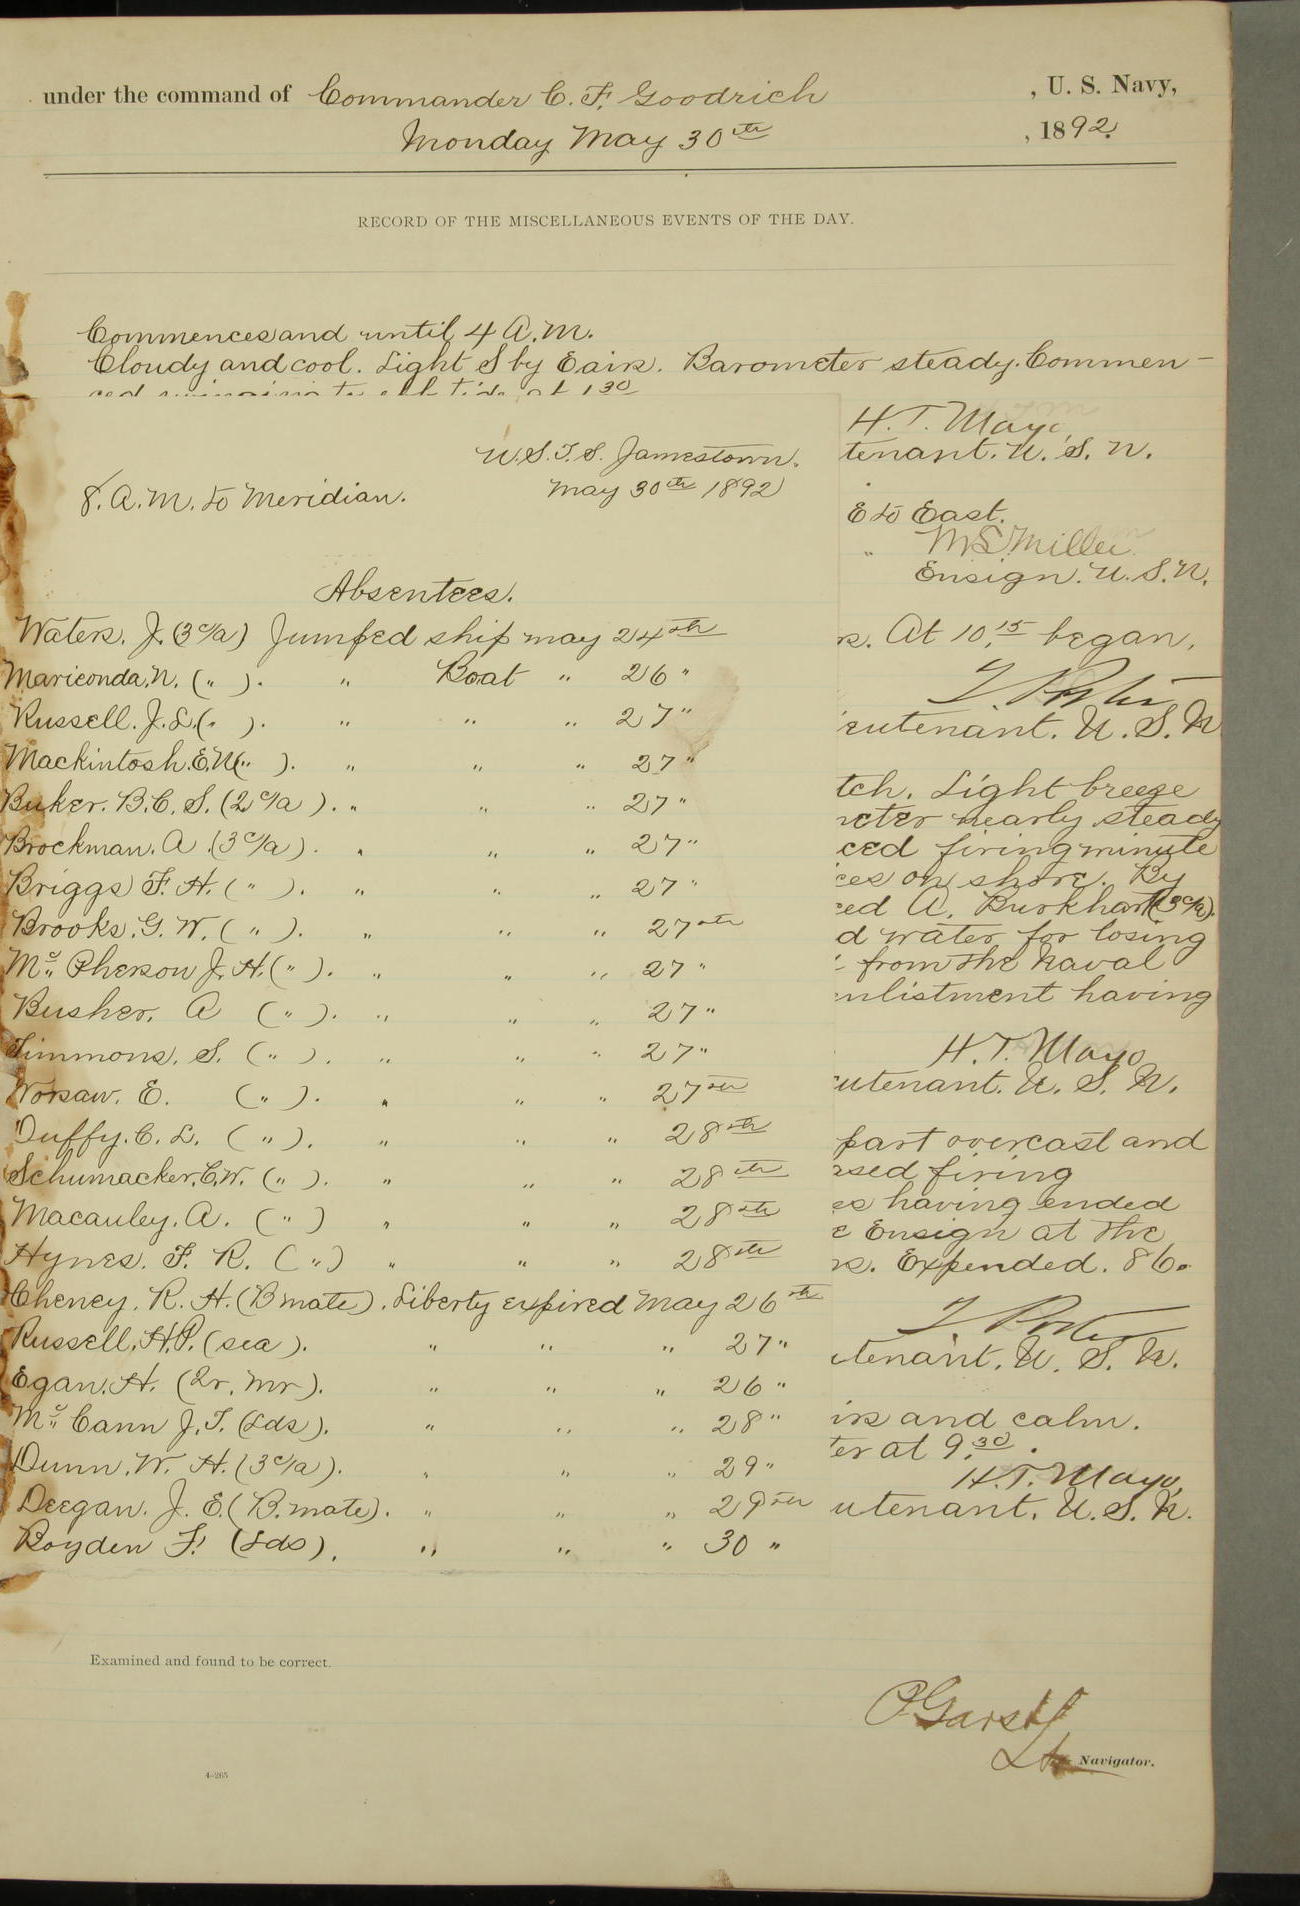 under the command of Commander C. F. Goodrich , U. S. Navy,
Monday May 30th , 1892.
RECORD OF THE MISCELLANEOUS EVENTS OF THE DAY.
Commences and until 4 A.M.
Cloudy and cool. Light S by E airs. Barometer steady. Commen-
U.S.T.S. Jamestown.
8. A.M. to Meridian. May 30th 1892
Absentees.
Waters. J. (3 c/a) Jumped ship may 24th
Mariconda. N. ( " ). " Boat " 26 "
Russell. J. L. ( " ). " " " 27 "
Mackintosh. E. N ( " ). " " " 27 "
Buker. B. C. S. (2 c/a). " " " 27 "
Brockman. A. (3 c/a). " " " 27 "
Briggs F. H. ( " ). " " " 27 "
Brooks. G. W. ( " ). " " " 27th
McPherson J. H. ( " ). " " " 27 "
Busher. A ( " ). " " " 27 "
Timmons. S. ( " ). " " " 27 "
Worsaw. E. ( " ). " " " 27th
Duffy. C. L. ( " ). " " " 28th
Schumacker. C. W. ( " ). " " " 28th
Macauley. A. ( " ) " " " 28th
Hynes. F. R. ( " ) " " " 28th
Cheney. R. H. (B mate). Liberty expired May 26th
Russell. H. P. (sea). " " " 27 "
Egan. H. (Qr. Mr). " " " 26 "
McCann J. T. (Lds). " " " 28 "
Dunn. W. H. (3 c/a). " " " 29 "
Deegan. J. E. (B. mate). " " " 29th
Boyden F. (Lds). " " " 30 "
H. T. Mayo
tenant. U. S. N.
E to East.
" M S Miller
Ensign. U. S. N.
s. At 10.15 began,
eutenant. U. S. N
tch. Light breeze
eter nearly steady
ced firing minute
ces on shore. By
ced A. Burkhart (3 c/a).
d water for losing
from the Naval
nlistment having
H. T. Mayo
eutenant. U. S. N.
part overcast and
ased firing
es having ended
e Ensign at the
s. Expended. 86.
utenant. U. S. N.
irs and calm.
ter at 9.30.
H. T. Mayo,
utenant. U. S. N.
Examined and found to be correct.
Navigator.
4-265